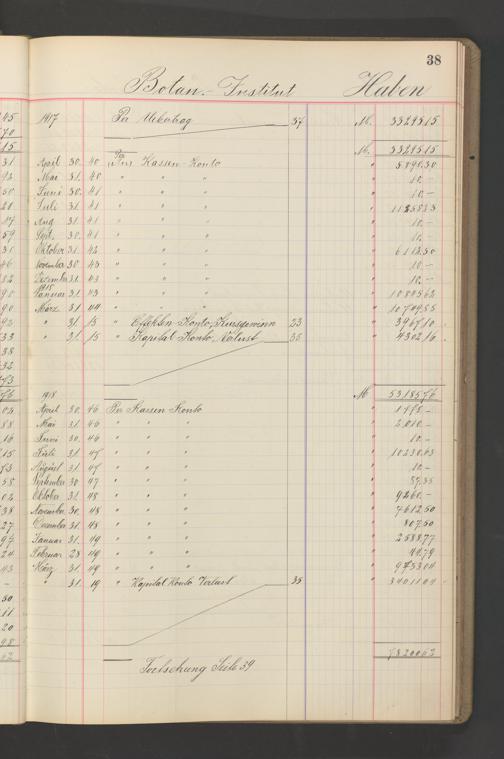 38
Botan.-Institut Haben
1917 Per Uebertrag 37 M. 3329515
M. 3329515
April 30. 40 Per Kassen-Konto " 589030
Mai 31. 40 " " " " 10.-
Juni 30. 41 " " " " 10.-
Juli 31. 41 " " " "
Aug. 31. 41 " " " " 10.-
Sept. 30. 41 " " " " 10.-
Oktober 31. 42 " " " " 611250
November 30. 43 " " " " 10.-
Dezember 31. 43 " " " " 10.-
1918
Januar 31. 43 " " " "
März 31. 44 " " " "
" 31. 15 " Effekten-Konto, Kursgewinn 23 " 396710
" 31. 15 " Kapital-Konto, Verlust 35 " 430216
1918 M. 5318576
April 30. 46 Per Kassen-Konto "
Mai 31. 46 " " " " 2010.-
Juni 30. 46 " " " " 10.-
Juli 31. 47 " " " " 1023063
August 31. 47 " " " " 10.-
September 30. 47 " " " "
Oktober 31. 48 " " " " 9260.-
November 30. 48 " " " " 761250
Dezember 31. 48 " " " " 80750
Januar 31. 49 " " " " 258877
Februar 28. 49 " " " " 4979
März 31. 49 " " " " 973304
" 31. 19 " Kapital Konto Verlust 35 " 3401104
7820063
Fortsetzung Seite 39